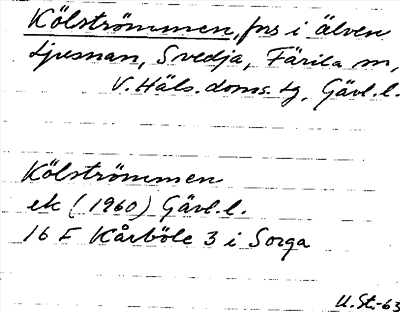 Kölströmmen, fors i älven
Ljusnan, Svedja, Färila sn,
V. Häls. doms. tg, Gävl. l.
Kölströmmen
ek (1960) Gävl. l.
16 F Kårböle 3 i Sorga
U. St.-63